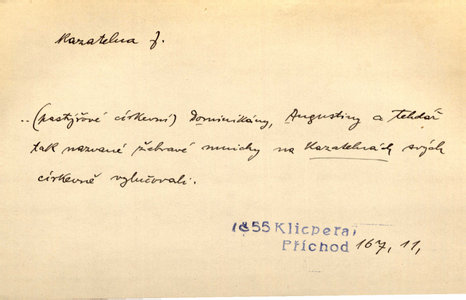 Kazatelna f.
..(pastýřové církevní) Dominikány, Augustiny a tehdáž
tak nazvané žebravé mnichy na Kazatelnách svých
církevně vylučovali.
1855 Klicpera,
Příchod 167, 11,